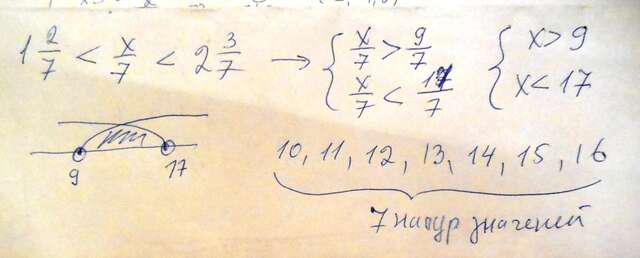 1 2/7 < x/7 < 2 3/7 → { x/7 > 9/7 { x > 9
x/7 < 17/7 x < 17
9 17
10, 11, 12, 13, 14, 15, 16
7 натур значений